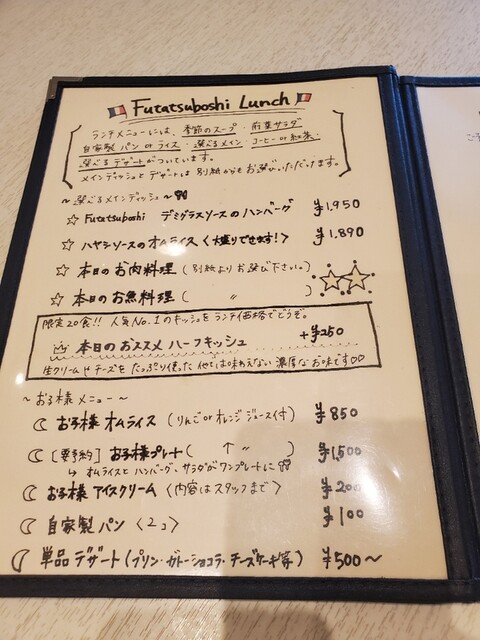 Futatsuboshi Lunch
ランチメニューには、季節のスープ・前菜サラダ
自家製パン or ライス・選べるメイン・コーヒー or 紅茶・
選べるデザートがついています。
メインディッシュとデザートは別紙からもお選びいただけます。
～選べるメインディッシュ～
☆ Futatsuboshi デミグラスソースのハンバーグ ¥1,950
☆ ハヤシソースのオムライス〈大盛りできます!〉 ¥1,890
☆ 本日のお肉料理（別紙よりお選び下さい。）
☆ 本日のお魚料理（ 〃 ）
限定20食!! 人気No.1のキッシュをランチ価格でどうぞ。
本日のおススメハーフキッシュ +¥250
生クリームやチーズをたっぷり使った他では味わえない濃厚なお味です♡♡
～お子様メニュー～
お子様オムライス（りんご or オレンジジュース付） ¥850
［要予約］お子様プレート（ ↑ 〃 ） ¥1,500
↳ オムライスとハンバーグ、サラダがワンプレートに
お子様アイスクリーム（内容はスタッフまで） ¥200
自家製パン〈2コ〉 ¥100
単品デザート（プリン・ガトーショコラ・チーズケーキ等） ¥500～